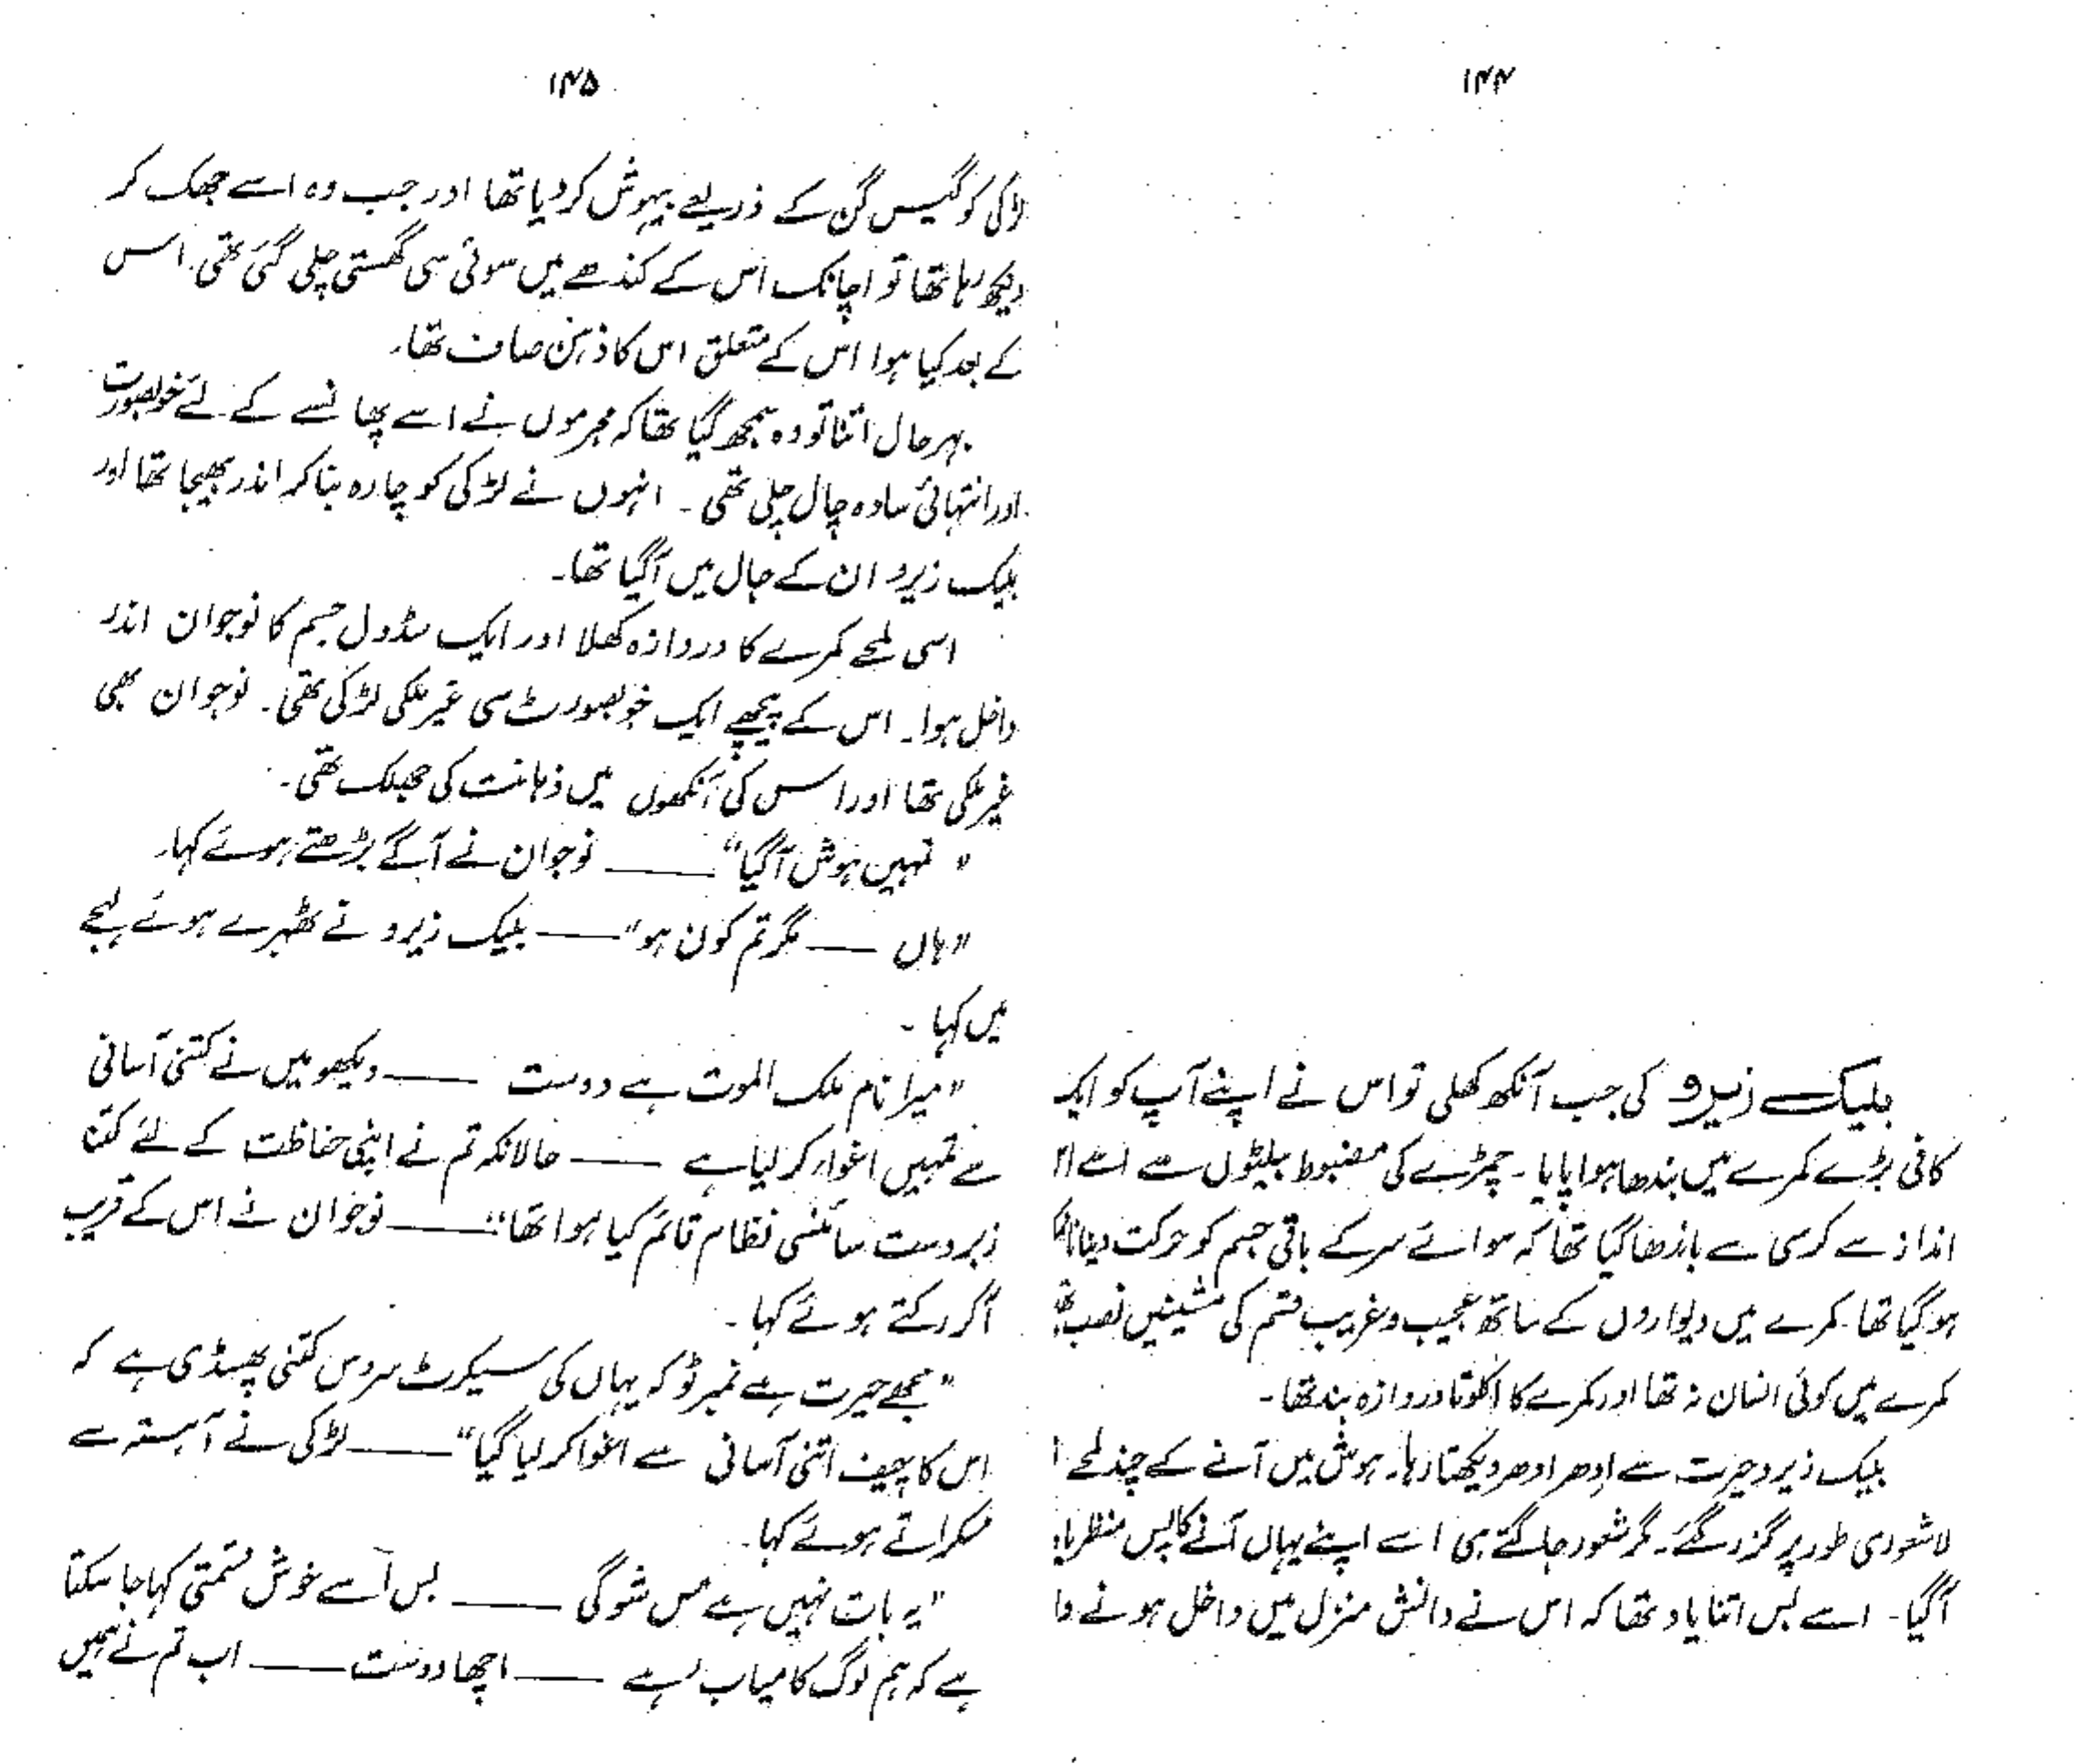 ۱۴۴
بلیک زیرو کی جب آنکھ کھلی تو اس نے اپنے آپ کو ایک
کافی بڑے کمرے میں بندھا ہوا پایا۔ چمڑے کی مضبوط بیلٹوں سے اسے
انداز سے کرسی سے باندھا گیا تھا کہ سوائے سر کے باقی جسم کو حرکت دینا
ہو گیا تھا۔ کمرے میں دیواروں کے ساتھ عجیب و غریب قسم کی مشینیں نصب
کمرے میں کوئی انسان نہ تھا اور کمرے کا اکلوتا دروازہ بند تھا۔
بلیک زیرو حیرت سے ادھر ادھر دیکھتا رہا۔ ہوش میں آنے کے چند لمحے
لاشعوری طور پر گزر گئے۔ مگر شعور جاگتے ہی اسے اپنے یہاں آنے کا پس منظر یاد
آگیا۔ اسے بس اتنا یاد تھا کہ اس نے دانش منزل میں داخل ہونے وا
۱۴۵
لڑکی کو گیس گن کے ذریعے بیہوش کر دیا تھا اور جب وہ اسے جھک کر
دیکھ رہا تھا تو اچانک اس کے کندھے میں سوئی سی گھستی چلی گئی تھی۔ اس
کے بعد کیا ہوا اس کے متعلق اس کا ذہن صاف تھا۔
بہرحال اتنا تو وہ سمجھ گیا تھا کہ مجرموں نے اسے پھانسے کے لئے خوبصورت
اور انتہائی سادہ چال چلی تھی۔ انہوں نے لڑکی کو چارہ بنا کر اندر بھیجا تھا اور
بلیک زیرو ان کے جال میں آگیا تھا۔
اسی لمحے کمرے کا دروازہ کھلا اور ایک سڈول جسم کا نوجوان اندر
داخل ہوا۔ اس کے پیچھے ایک خوبصورت سی غیر ملکی لڑکی تھی۔ نوجوان بھی
غیر ملکی تھا اور اس کی آنکھوں میں ذہانت کی جھلک تھی۔
"تمہیں ہوش آگیا" ——— نوجوان نے آگے بڑھتے ہوئے کہا۔
"ہاں —— مگر تم کون ہو" —— بلیک زیرو نے ٹھہرے ہوئے لہجے
میں کہا۔
"میرا نام ملک الموت ہے دوست —— دیکھو میں نے کتنی آسانی
سے تمہیں اغوا کر لیا ہے —— حالانکہ تم نے اپنی حفاظت کے لئے کتنا
زبردست سائنسی نظام قائم کیا ہوا تھا" —— نوجوان نے اس کے قریب
آکر رکتے ہوئے کہا۔
"مجھے حیرت ہے نمبر ٹو کہ یہاں کی سیکرٹ سروس کتنی پھسڈی ہے کہ
اس کا چیف اتنی آسانی سے اغوا کر لیا گیا" ——— لڑکی نے آہستہ سے
مسکراتے ہوئے کہا۔
"یہ بات نہیں ہے مس شوگی —— بس اسے خوش قسمتی کہا جا سکتا
ہے کہ ہم لوگ کامیاب رہے —— اچھا دوست —— اب تم نے ہمیں